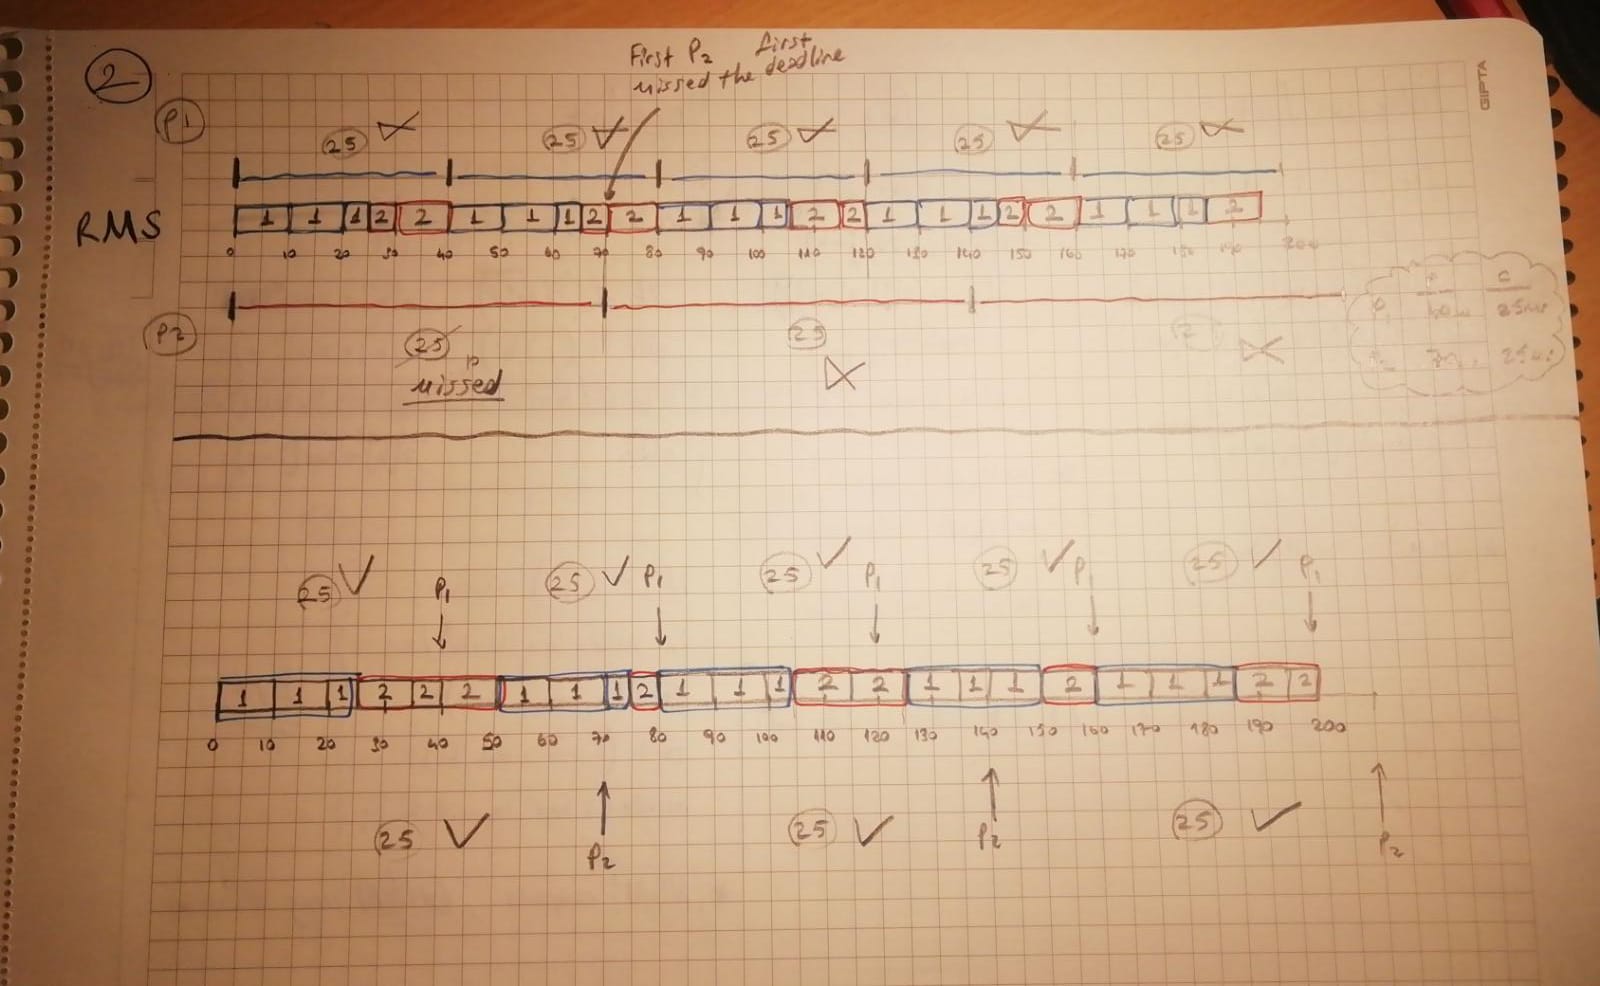 2
First P2 first
missed the deadline
GIPTA
P1
25 25 25 25 25
RMS
1 1 1 2 2 1 1 1 2 2 1 1 1 2 2 1 1 1 2 2 1 1 1 2
0 10 20 30 40 50 60 70 80 90 100 110 120 130 140 150 160 170 180 190 200
P2
25 25
missed
P C
P1 40 25ms
25ms
25 P1 25 P1 25 P1 25 P1 25 P1
1 1 1 2 2 2 1 1 1 2 1 1 1 2 2 1 1 1 2 1 1 1 2 2
0 10 20 30 40 50 60 70 80 90 100 110 120 130 140 150 160 170 180 190 200
25 P2 25 P2 25 P2